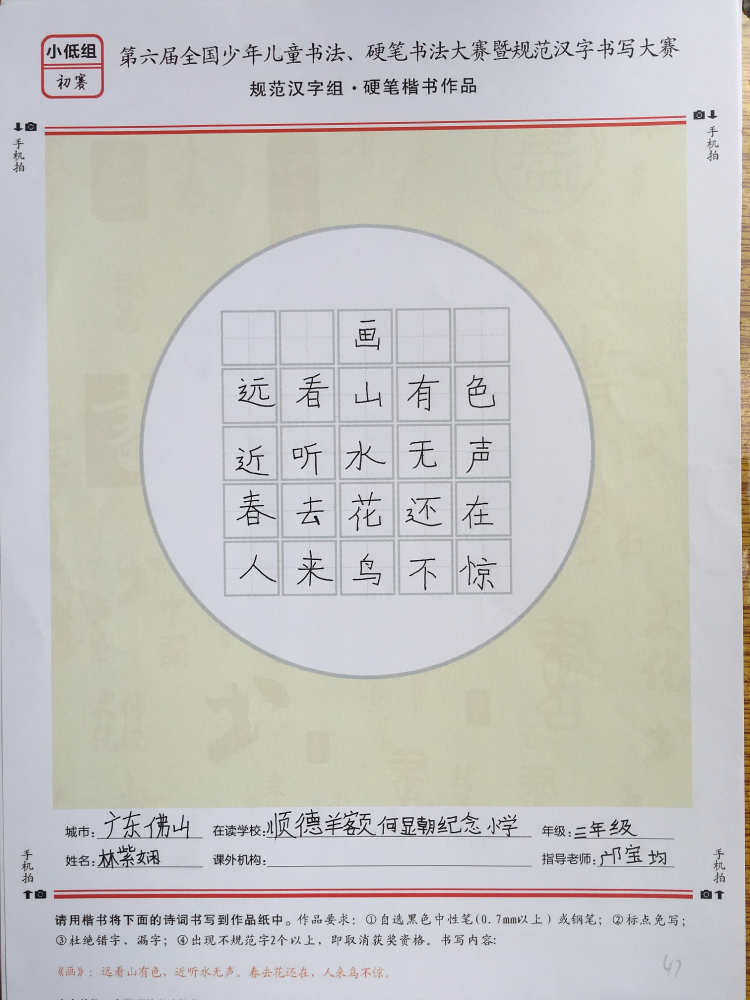 小低组
初赛
第六届全国少年儿童书法、硬笔书法大赛暨规范汉字书写大赛
规范汉字组·硬笔楷书作品
手机拍
手机拍
画
远看山有色
近听水无声
春去花还在
人来鸟不惊
城市：广东佛山 在读学校：顺德羊额何显朝纪念小学 年级：三年级
姓名：林紫娴 课外机构： 指导老师：邝宝均
手机拍
手机拍
请用楷书将下面的诗词书写到作品纸中。作品要求：①自选黑色中性笔(0.7mm以上)或钢笔；②标点免写；
③杜绝错字、漏字；④出现不规范字2个以上，即取消获奖资格。书写内容：
《画》：远看山有色，近听水无声。春去花还在，人来鸟不惊。
47